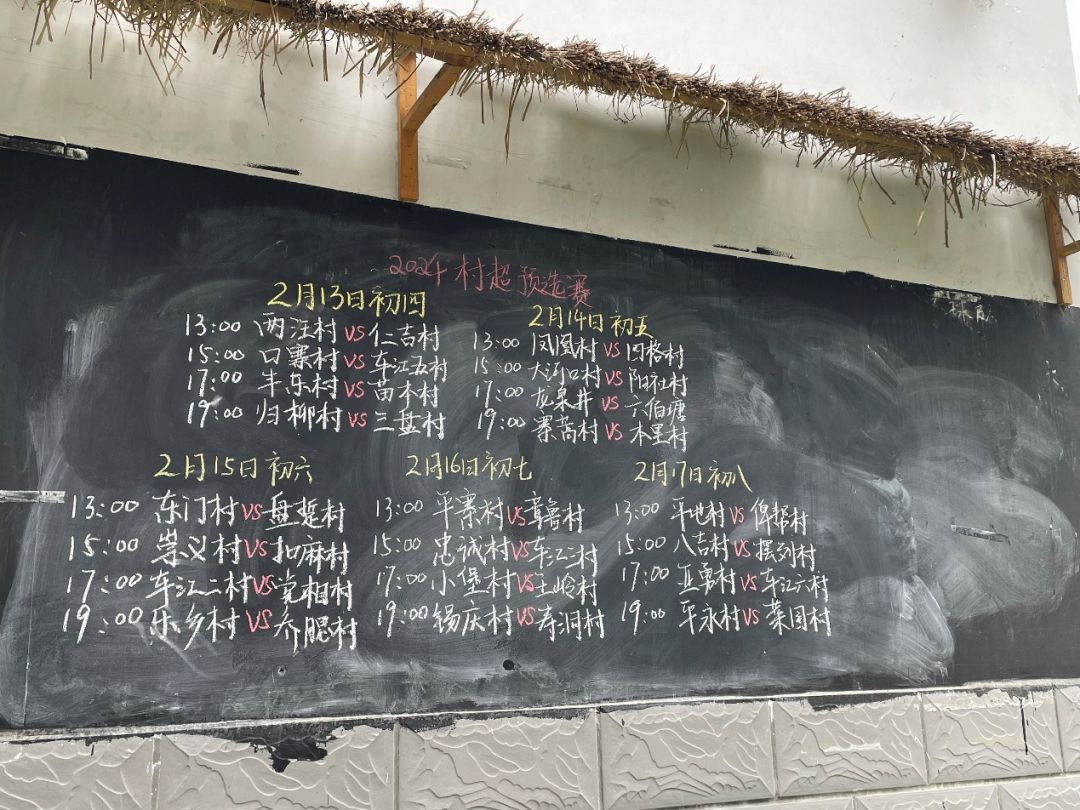 2024年村超预选赛
2月13日初四
13:00 两汪村 VS 仁吉村
15:00 口寨村 VS 车江五村
17:00 丰乐村 VS 苗本村
19:00 归柳村 VS 三盘村
2月14日初五
13:00 凤凰村 VS 四格村
15:00 大河口村 VS 阳社村
17:00 龙泉井 VS 六佰塘
19:00 寨蒿村 VS 本里村
2月15日初六
13:00 东门村 VS 盘楚村
15:00 崇义村 VS 扣麻村
17:00 车江二村 VS 党相村
19:00 乐乡村 VS 乔腮村
2月16日初七
13:00 平寨村 VS 章鲁村
15:00 忠诚村 VS 车江三村
17:00 小堡村 VS 王岭村
19:00 锡庆村 VS 寿洞村
2月17日初八
13:00 平地村 VS 俾帮村
15:00 八吉村 VS 摆列村
17:00 亚勇村 VS 车江六村
19:00 平永村 VS 菜园村